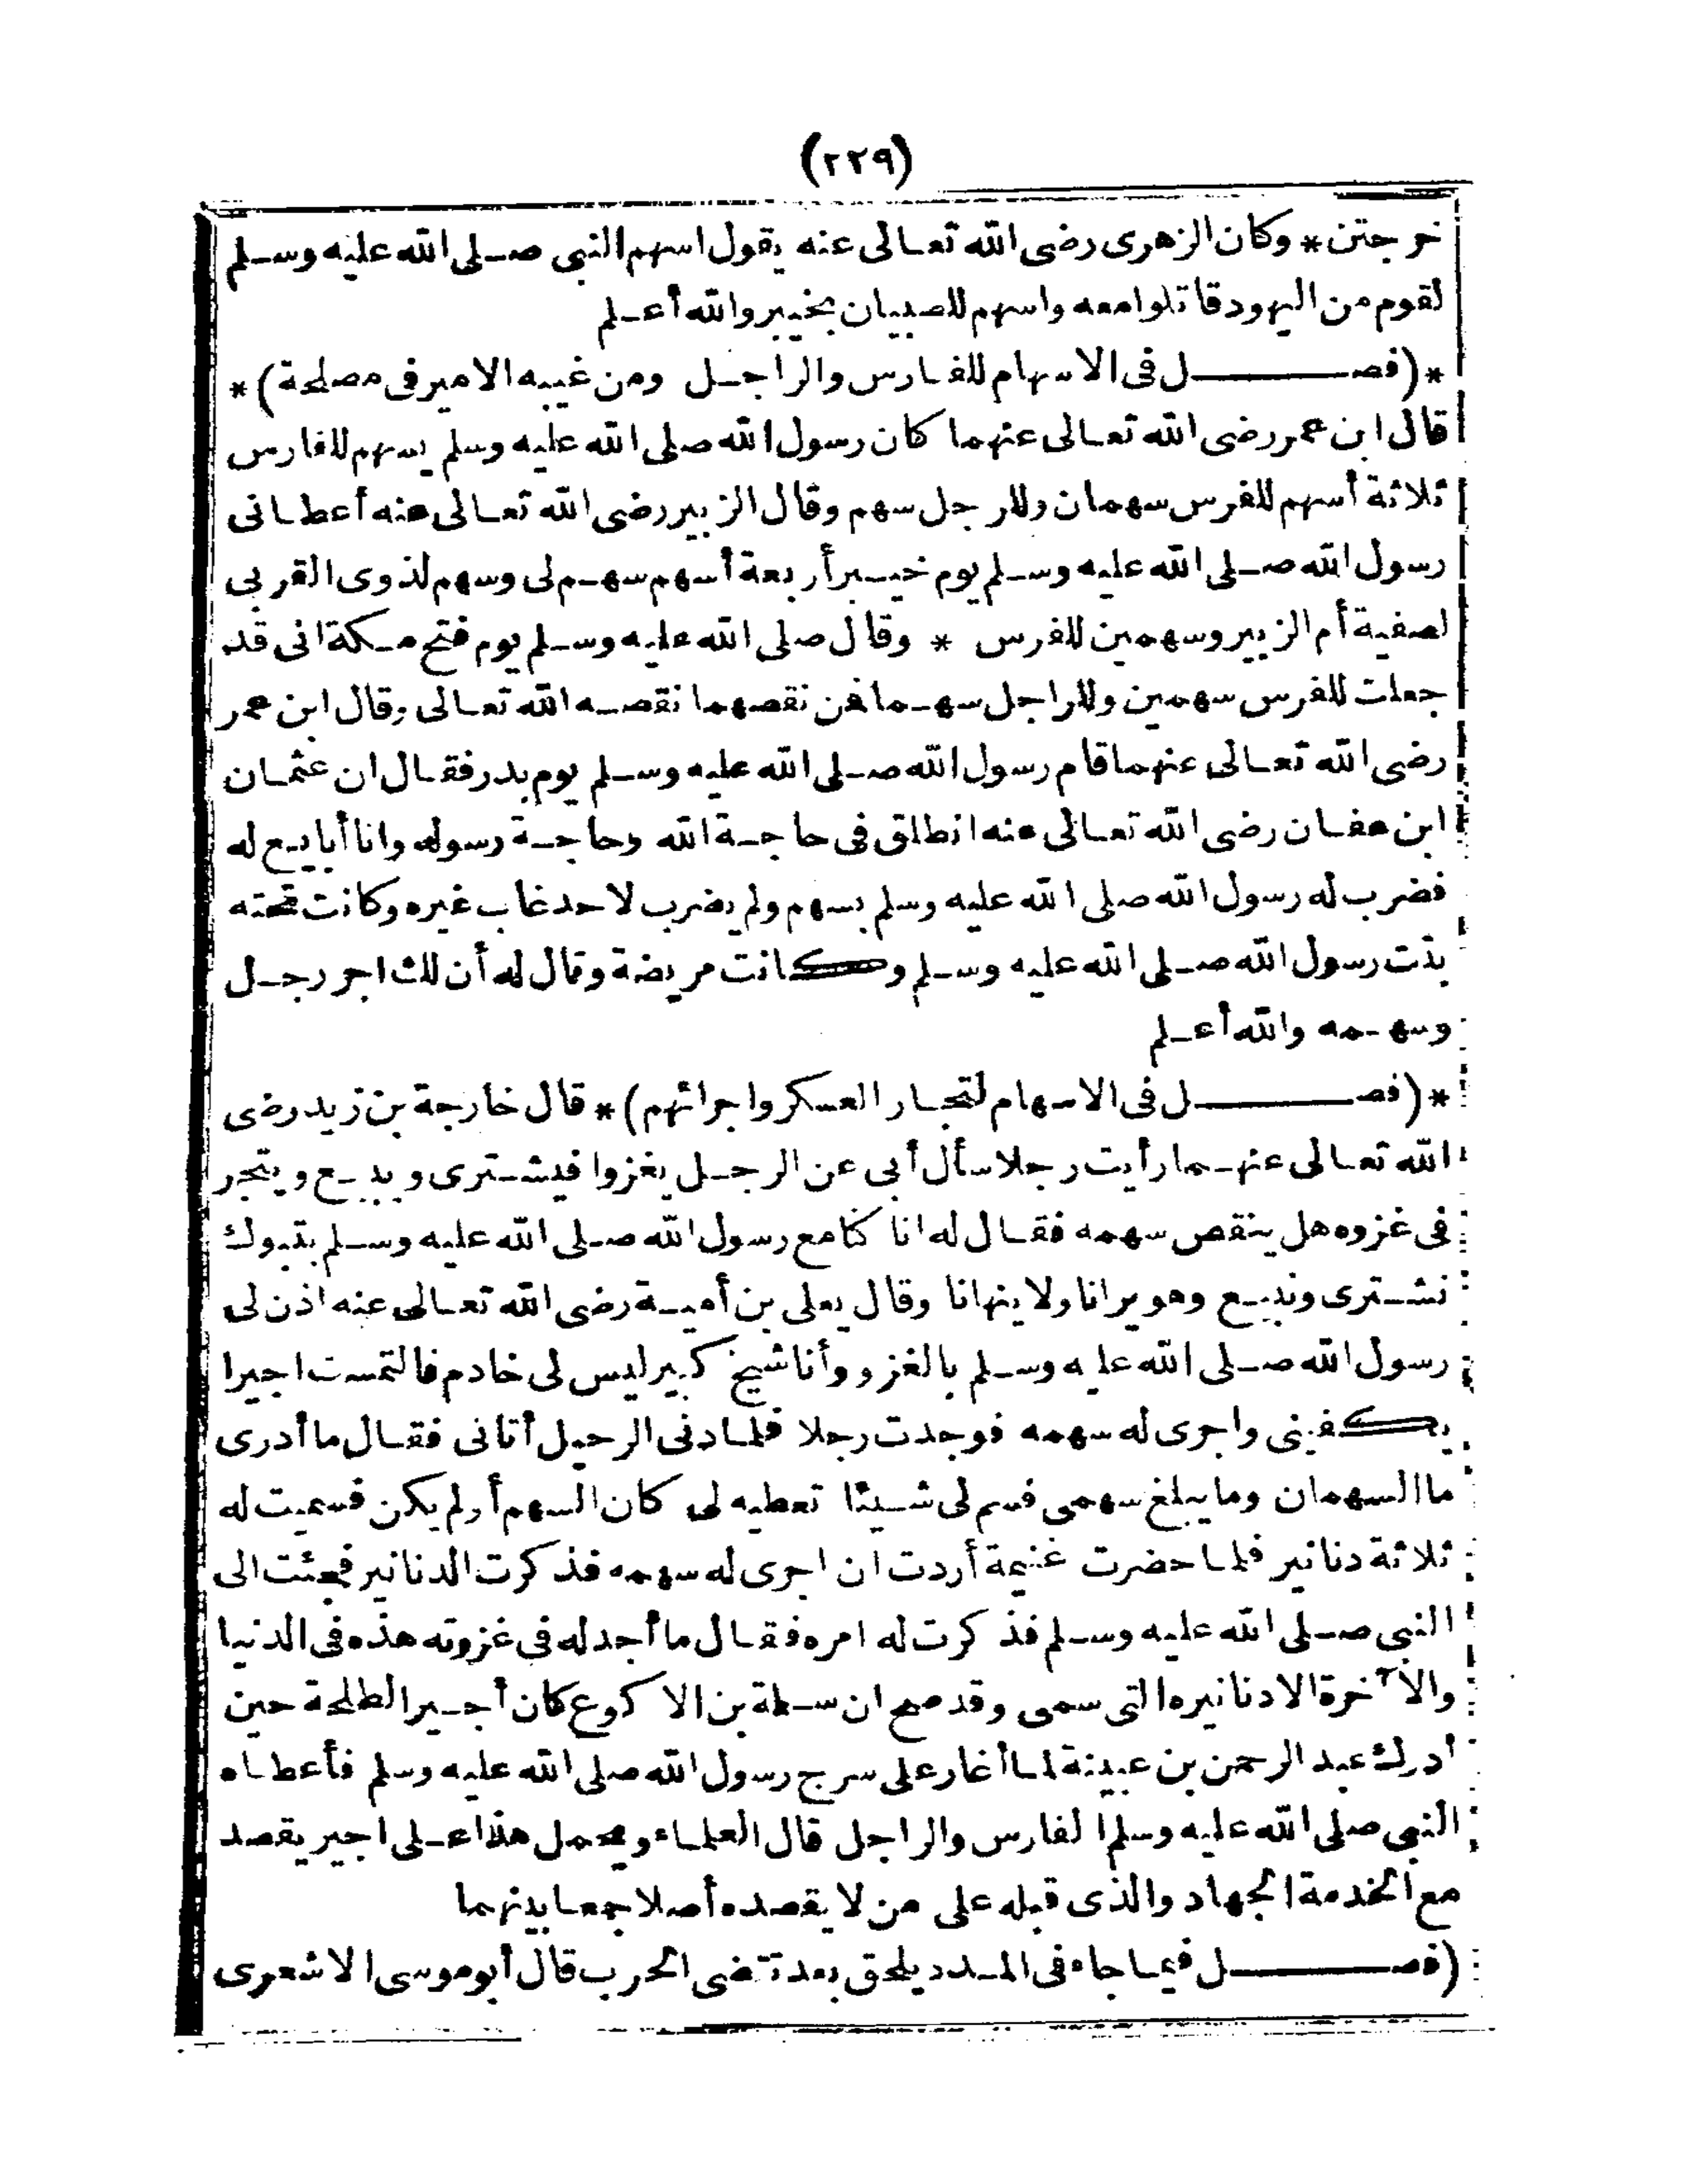 (٢٢٩)
خرجتن * وكان الزهرى رضى الله تعالى عنه يقول اسهم النبى صلى الله عليه وسلم
لقوم من اليهود قاتلوا معه واسهم للصبيان بخيبر والله أعلم
*(فصل فى الاسهام للفارس والراجل ومن غيبه الامير فى مصلحة)*
قال ابن عمر رضى الله تعالى عنهما كان رسول الله صلى الله عليه وسلم يسهم للفارس
ثلاثة أسهم للفرس سهمان وللرجل سهم وقال الزبير رضى الله تعالى عنه أعطانى
رسول الله صلى الله عليه وسلم يوم خيبر أربعة أسهم سهم لى وسهم لذوى القربى
لصفية أم الزبير وسهمين للفرس * وقال صلى الله عليه وسلم يوم فتح مكة انى قد
جعلت للفرس سهمين وللراجل سهما فمن نقصهما نقصه الله تعالى وقال ابن عمر
رضى الله تعالى عنهما قام رسول الله صلى الله عليه وسلم يوم بدر فقال ان عثمان
ابن عفان رضى الله تعالى عنه انطلق فى حاجة الله وحاجة رسوله وانا أبايع له
فضرب له رسول الله صلى الله عليه وسلم بسهم ولم يضرب لاحد غاب غيره وكانت تحته
بنت رسول الله صلى الله عليه وسلم وكانت مريضة وقال له أن لك اجر رجل
وسهمه والله أعلم
*(فصل فى الاسهام لتجار العسكر واجرائهم)* قال خارجة بن زيد رضى
الله تعالى عنهما رأيت رجلا سأل أبى عن الرجل يغزوا فيشترى ويبيع ويتجر
فى غزوه هل ينقص سهمه فقال له انا كنا مع رسول الله صلى الله عليه وسلم بتبوك
نشترى ونبيع وهو يرانا ولا ينهانا وقال يعلى بن أمية رضى الله تعالى عنه اذن لى
رسول الله صلى الله عليه وسلم بالغزو وأنا شيخ كبير ليس لى خادم فالتمست اجيرا
يكفينى واجرى له سهمه فوجدت رجلا فلما دنى الرحيل أتانى فقال ما أدرى
ما السهمان وما يبلغ سهمى فسم لى شيئا تعطيه لى كان السهم أو لم يكن فسميت له
ثلاثة دنانير فلما حضرت غنيمة أردت ان اجرى له سهمه فذكرت الدنانير فجئت الى
النبى صلى الله عليه وسلم فذكرت له امره فقال ما أجد له فى غزوته هذه فى الدنيا
والآخرة الا دنانيره التى سمى وقد صح ان سلمة بن الاكوع كان أجيرا لطلحة حين
أدرك عبد الرحمن بن عيينة لما أغار على سرح رسول الله صلى الله عليه وسلم فأعطاه
النبى صلى الله عليه وسلم الفارس والراجل قال العلماء ويحمل هذا على اجير يقصد
مع الخدمة الجهاد والذى قبله على من لا يقصده أصلا جمعا بينهما
(فصل فيما جاء فى المدد يلحق بعد تقضى الحرب قال أبو موسى الاشعرى